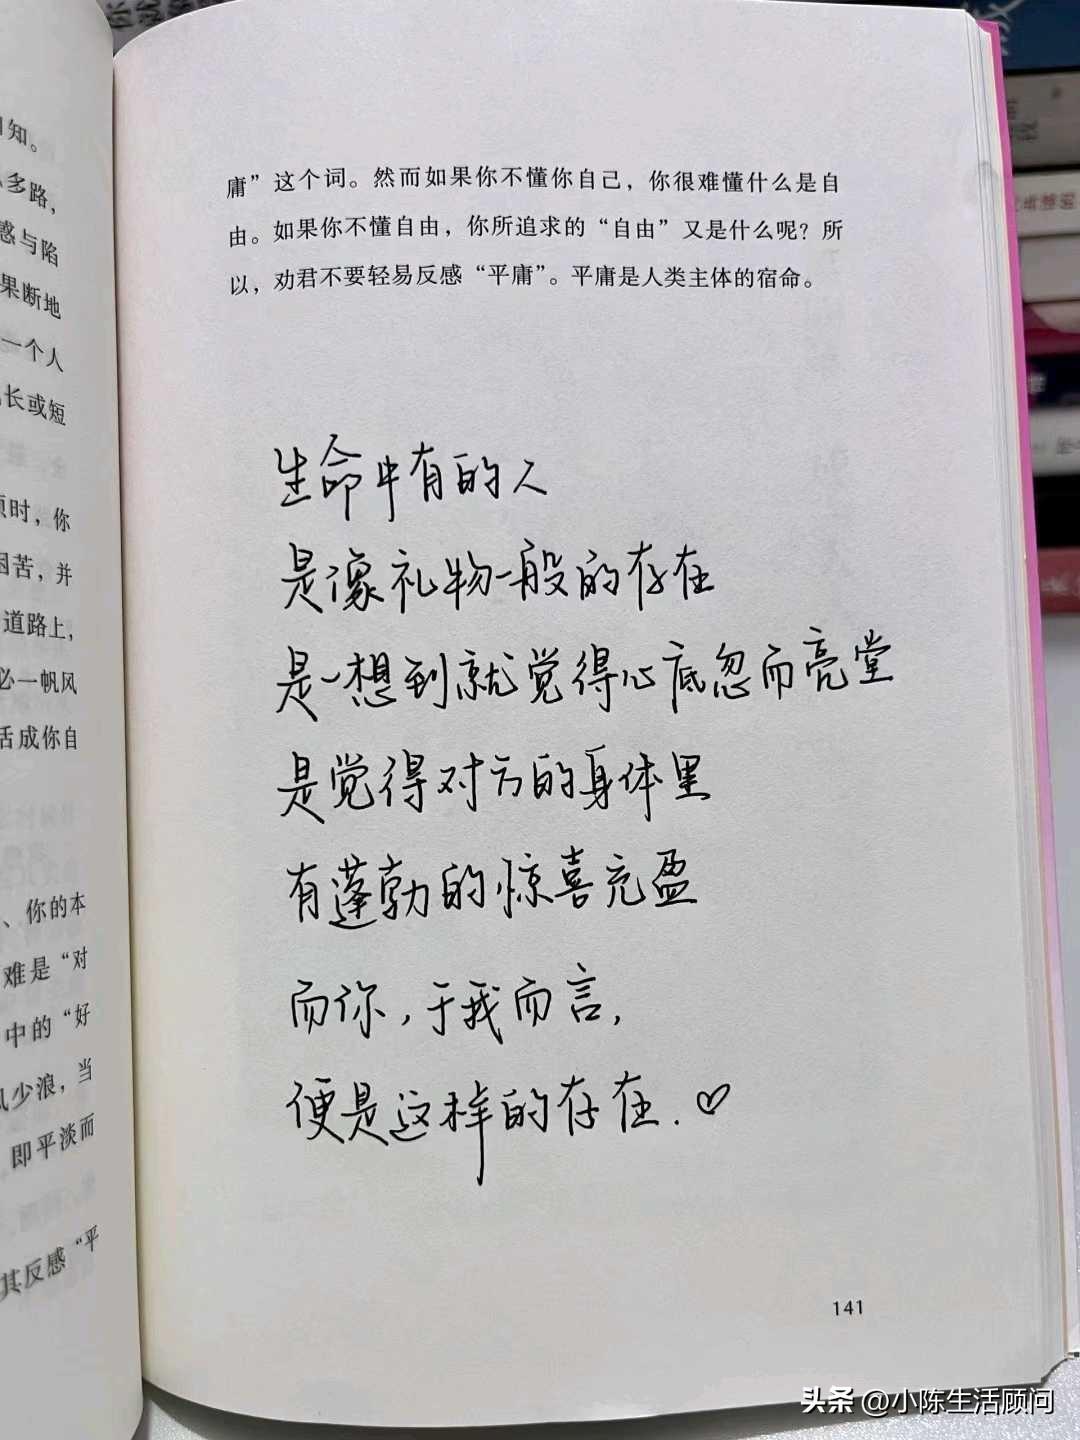 知。
多路，
惑与陷
果断地
一个人
长或短
时，你
困苦，并
道路上，
必一帆风
活成你自
、你的本
难是“对
中的“好
少浪，当
即平淡而
其反感“平
庸”这个词。然而如果你不懂你自己，你很难懂什么是自
由。如果你不懂自由，你所追求的“自由”又是什么呢？所
以，劝君不要轻易反感“平庸”。平庸是人类主体的宿命。
生命中有的人
是像礼物一般的存在
是一想到就觉得心底忽而亮堂
是觉得对方的身体里
有蓬勃的惊喜充盈
而你，于我而言，
便是这样的存在.♡
141
头条 @小陈生活顾问